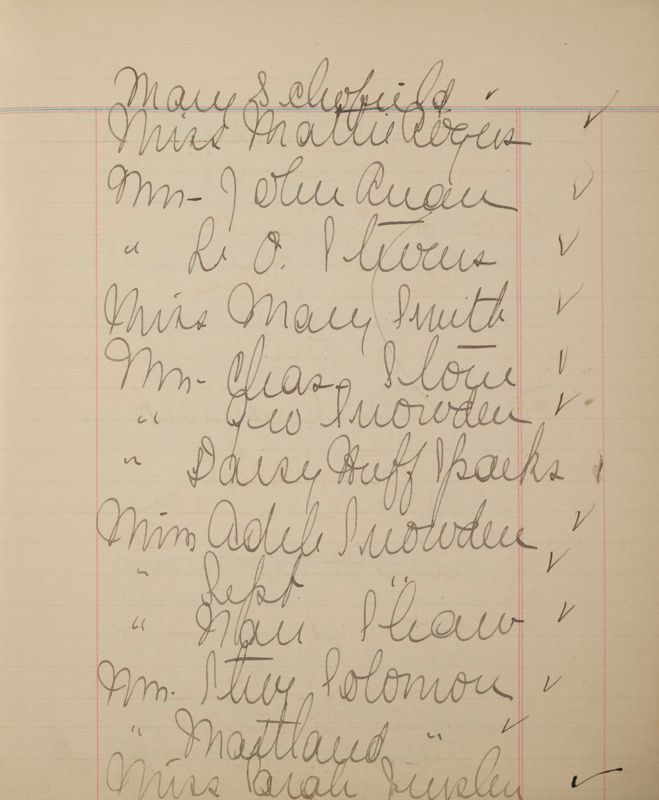 Mary Schofield ✓
Miss Mattie Rogers ✓
Mrs - John Ruan ✓
" L. O. Stevens ✓
Miss Mary Smith ✓
Mrs - Chas. Stone ✓
" Geo Snowden ✓
" Daisy Huff Sparks
Miss Adele Snowden ✓
" Sept " ✓
" Nan Shaw ✓
Mrs. Solomon ✓
" Maitland " ✓
Miss Sarah Tinsley ✓